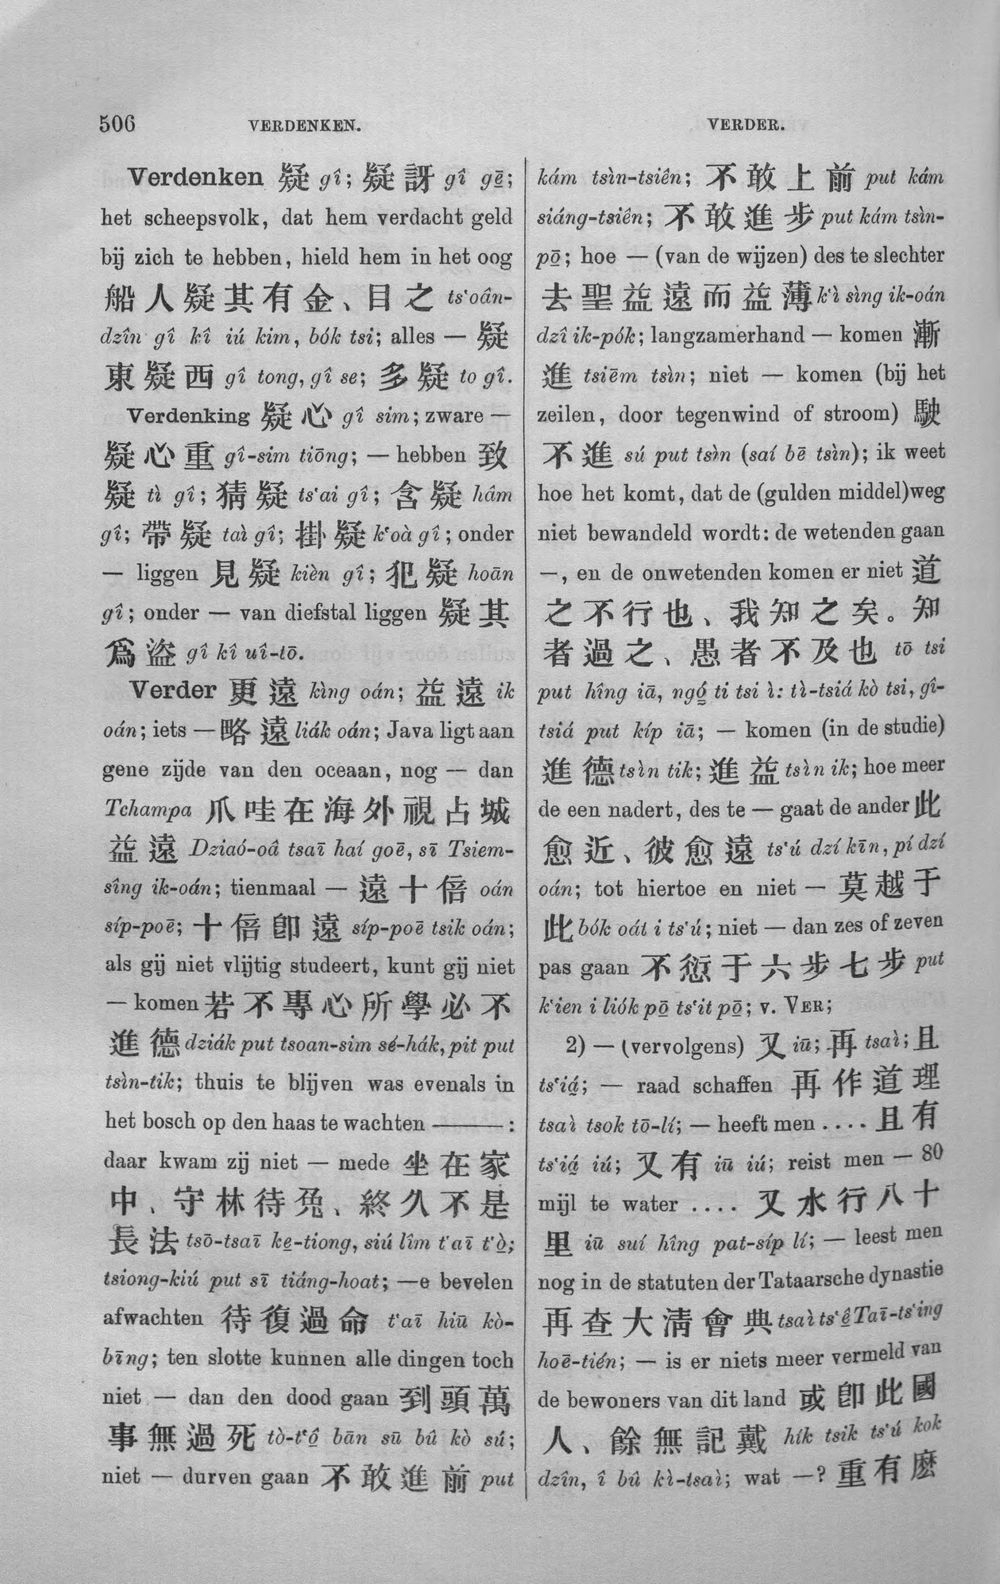 506
VERDENKEN.
VERDER.
Verdenken 疑 gî; 疑訝 gî gē;
het scheepsvolk, dat hem verdacht geld
bij zich te hebben, hield hem in het oog
船人疑其有金、目之 ts‘oân-
dzîn gî kî iú kim, bók tsi; alles — 疑
東疑西 gî tong, gî se; 多疑 to gî.
Verdenking 疑心 gî sim; zware —
疑心重 gî-sim tiōng; — hebben 致
疑 tì gî; 猜疑 ts‘ai gî; 含疑 hâm
gî; 帶疑 taì gî; 掛疑 k‘oà gî; onder
— liggen 見疑 kièn gî; 犯疑 hoān
gî; onder — van diefstal liggen 疑其
爲盜 gî kî uî-tō.
Verder 更遠 kìng oán; 益遠 ik
oán; iets — 略遠 liák oán; Java ligt aan
gene zijde van den oceaan, nog — dan
Tchampa 爪哇在海外視占城
益遠 Dziaó-oâ tsaī haí goē, sī Tsiem-
sîng ik-oán; tienmaal — 遠十倍 oán
síp-poē; 十倍卽遠 síp-poē tsik oán;
als gij niet vlijtig studeert, kunt gij niet
— komen 若不專心所學必不
進德 dziák put tsoan-sim sé-hák, pit put
tsìn-tik; thuis te blijven was evenals in
het bosch op den haas te wachten ———:
daar kwam zij niet — mede 坐在家
中、守林待兎、終久不是
長法 tsō-tsaī ke-tiong, siú lîm t‘aī t‘ò;
tsiong-kiú put sī tiáng-hoat; —e bevelen
afwachten 待復過命 t‘aī hiū kò-
bīng; ten slotte kunnen alle dingen toch
niet — dan den dood gaan 到頭萬
事無過死 tò-t‘ô bān sū bû kò sú;
niet — durven gaan 不敢進前 put
kám tsìn-tsiên; 不敢上前 put kám
siáng-tsiên; 不敢進步 put kám tsìn-
pō; hoe — (van de wijzen) des te slechter
去聖益遠而益薄 k‘ì sìng ik-oán
dzî ik-pók; langzamerhand — komen 漸
進 tsiēm tsìn; niet — komen (bij het
zeilen, door tegenwind of stroom) 駛
不進 sú put tsìn (saí bē tsìn); ik weet
hoe het komt, dat de (gulden middel)weg
niet bewandeld wordt: de wetenden gaan
—, en de onwetenden komen er niet 道
之不行也、我知之矣。知
者過之、愚者不及也 tō tsi
put hîng iā, ngó ti tsi ì: tì-tsiá kò tsi, gî-
tsiá put kíp iā; — komen (in de studie)
進德 tsìn tik; 進益 tsìn ik; hoe meer
de een nadert, des te — gaat de ander 此
愈近、彼愈遠 ts‘ú dzí kīn, pí dzí
oán; tot hiertoe en niet — 莫越于
此 bók oát i ts‘ú; niet — dan zes of zeven
pas gaan 不愆于六步七步 put
k‘ien i liók pō ts‘it pō; v. VER;
2) — (vervolgens) 又 iū; 再 tsaì; 且
ts‘iá; — raad schaffen 再作道理
tsaì tsok tō-lí; — heeft men .... 且有
ts‘iá iú; 又有 iū iú; reist men — 80
mijl te water .... 又水行八十
里 iū suí hîng pat-síp lí; — leest men
nog in de statuten der Tataarsche dynastie
再查大淸會典 tsaì ts‘ê Taī-ts‘ing
hoē-tién; — is er niets meer vermeld van
de bewoners van dit land 或卽此國
人、餘無記戴 hík tsik ts‘ú kok
dzîn, î bû kì-tsaì; wat —? 重有麽